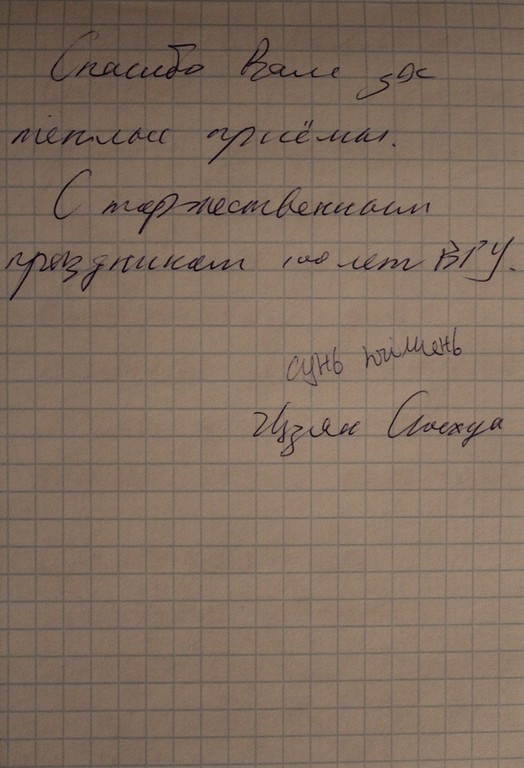 Спасибо Вам за
теплые приёмы.
С торжественным
праздником 100 лет ВГУ.
сунь
Цзян Сюехуа